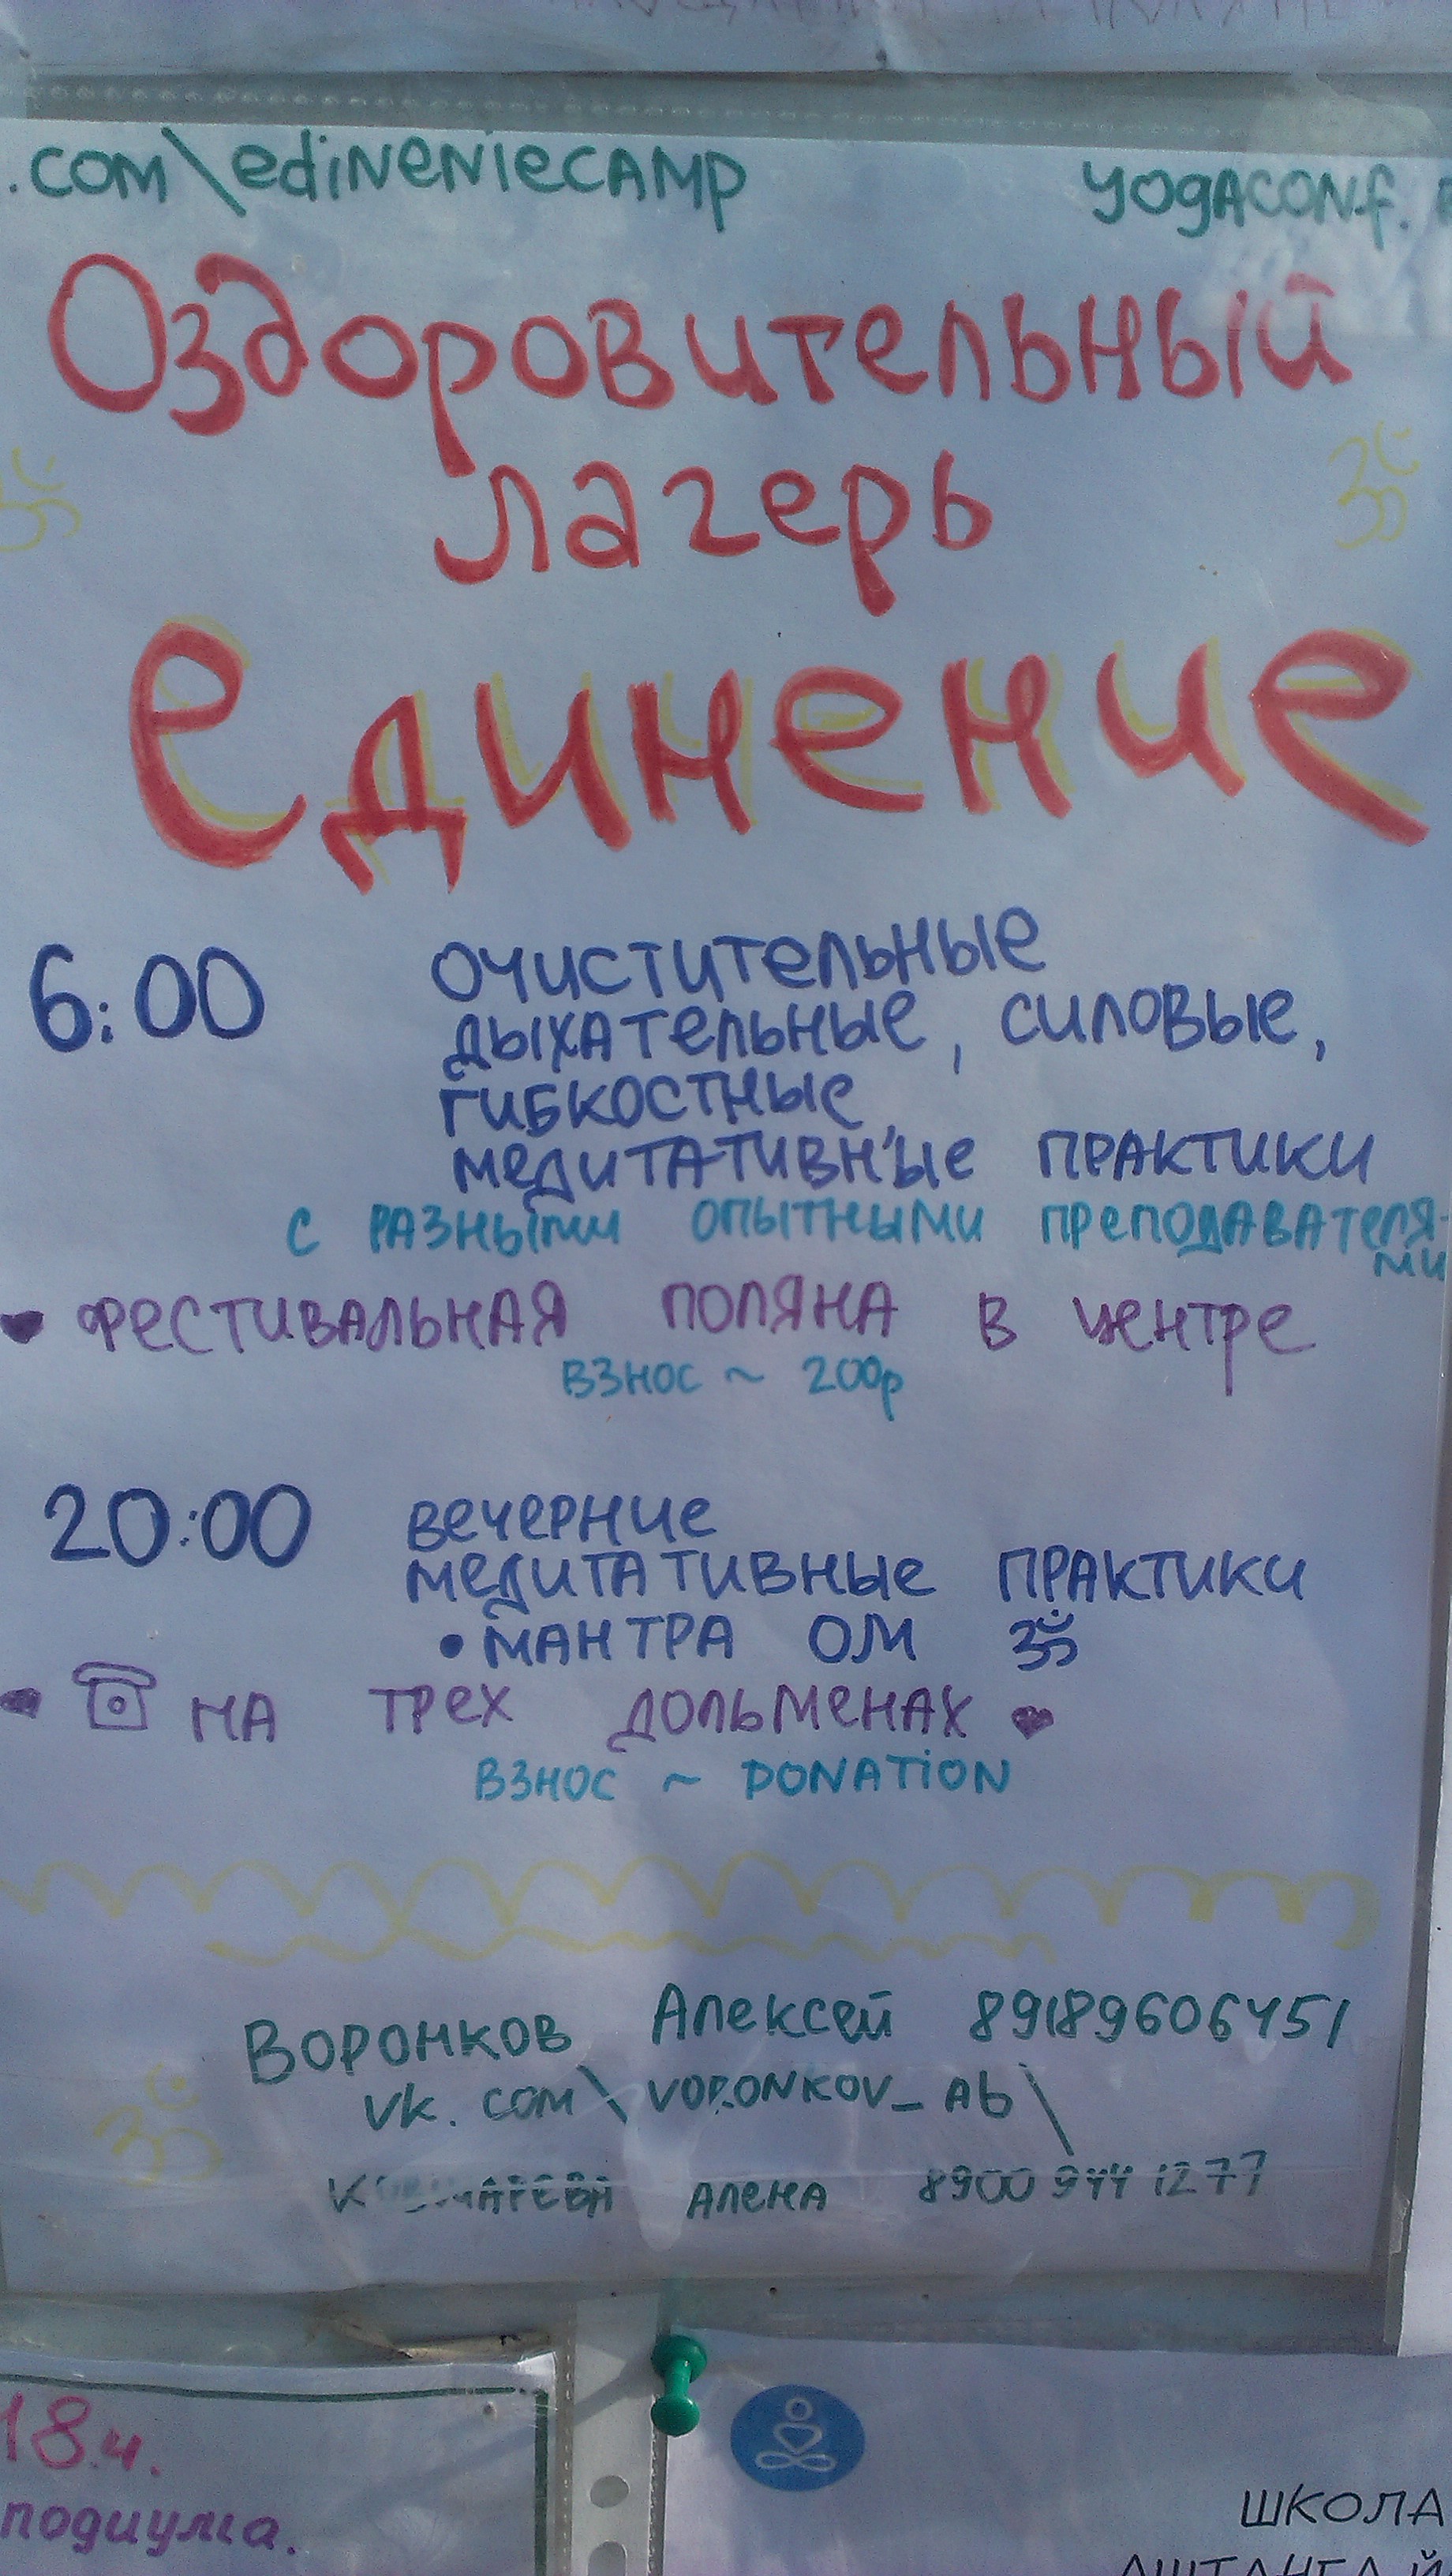 .com\edineniecamp yogaconf.
Оздоровительный
лагерь
единение
6:00 очистительные
дыхательные, силовые,
гибкостные,
медитативные практики
с разными опытными преподавателя-
ми
фестивальная поляна в центре
взнос ~ 200р
20:00 вечерние
медитативные практики
• мантра ом ॐ
на трех дольменах
взнос ~ DONATION
Воронков Алексей 89189606451
vk.com\voronkov_ab\
Алена 8900 944 1277
18ч.
подиума.
ШКОЛА